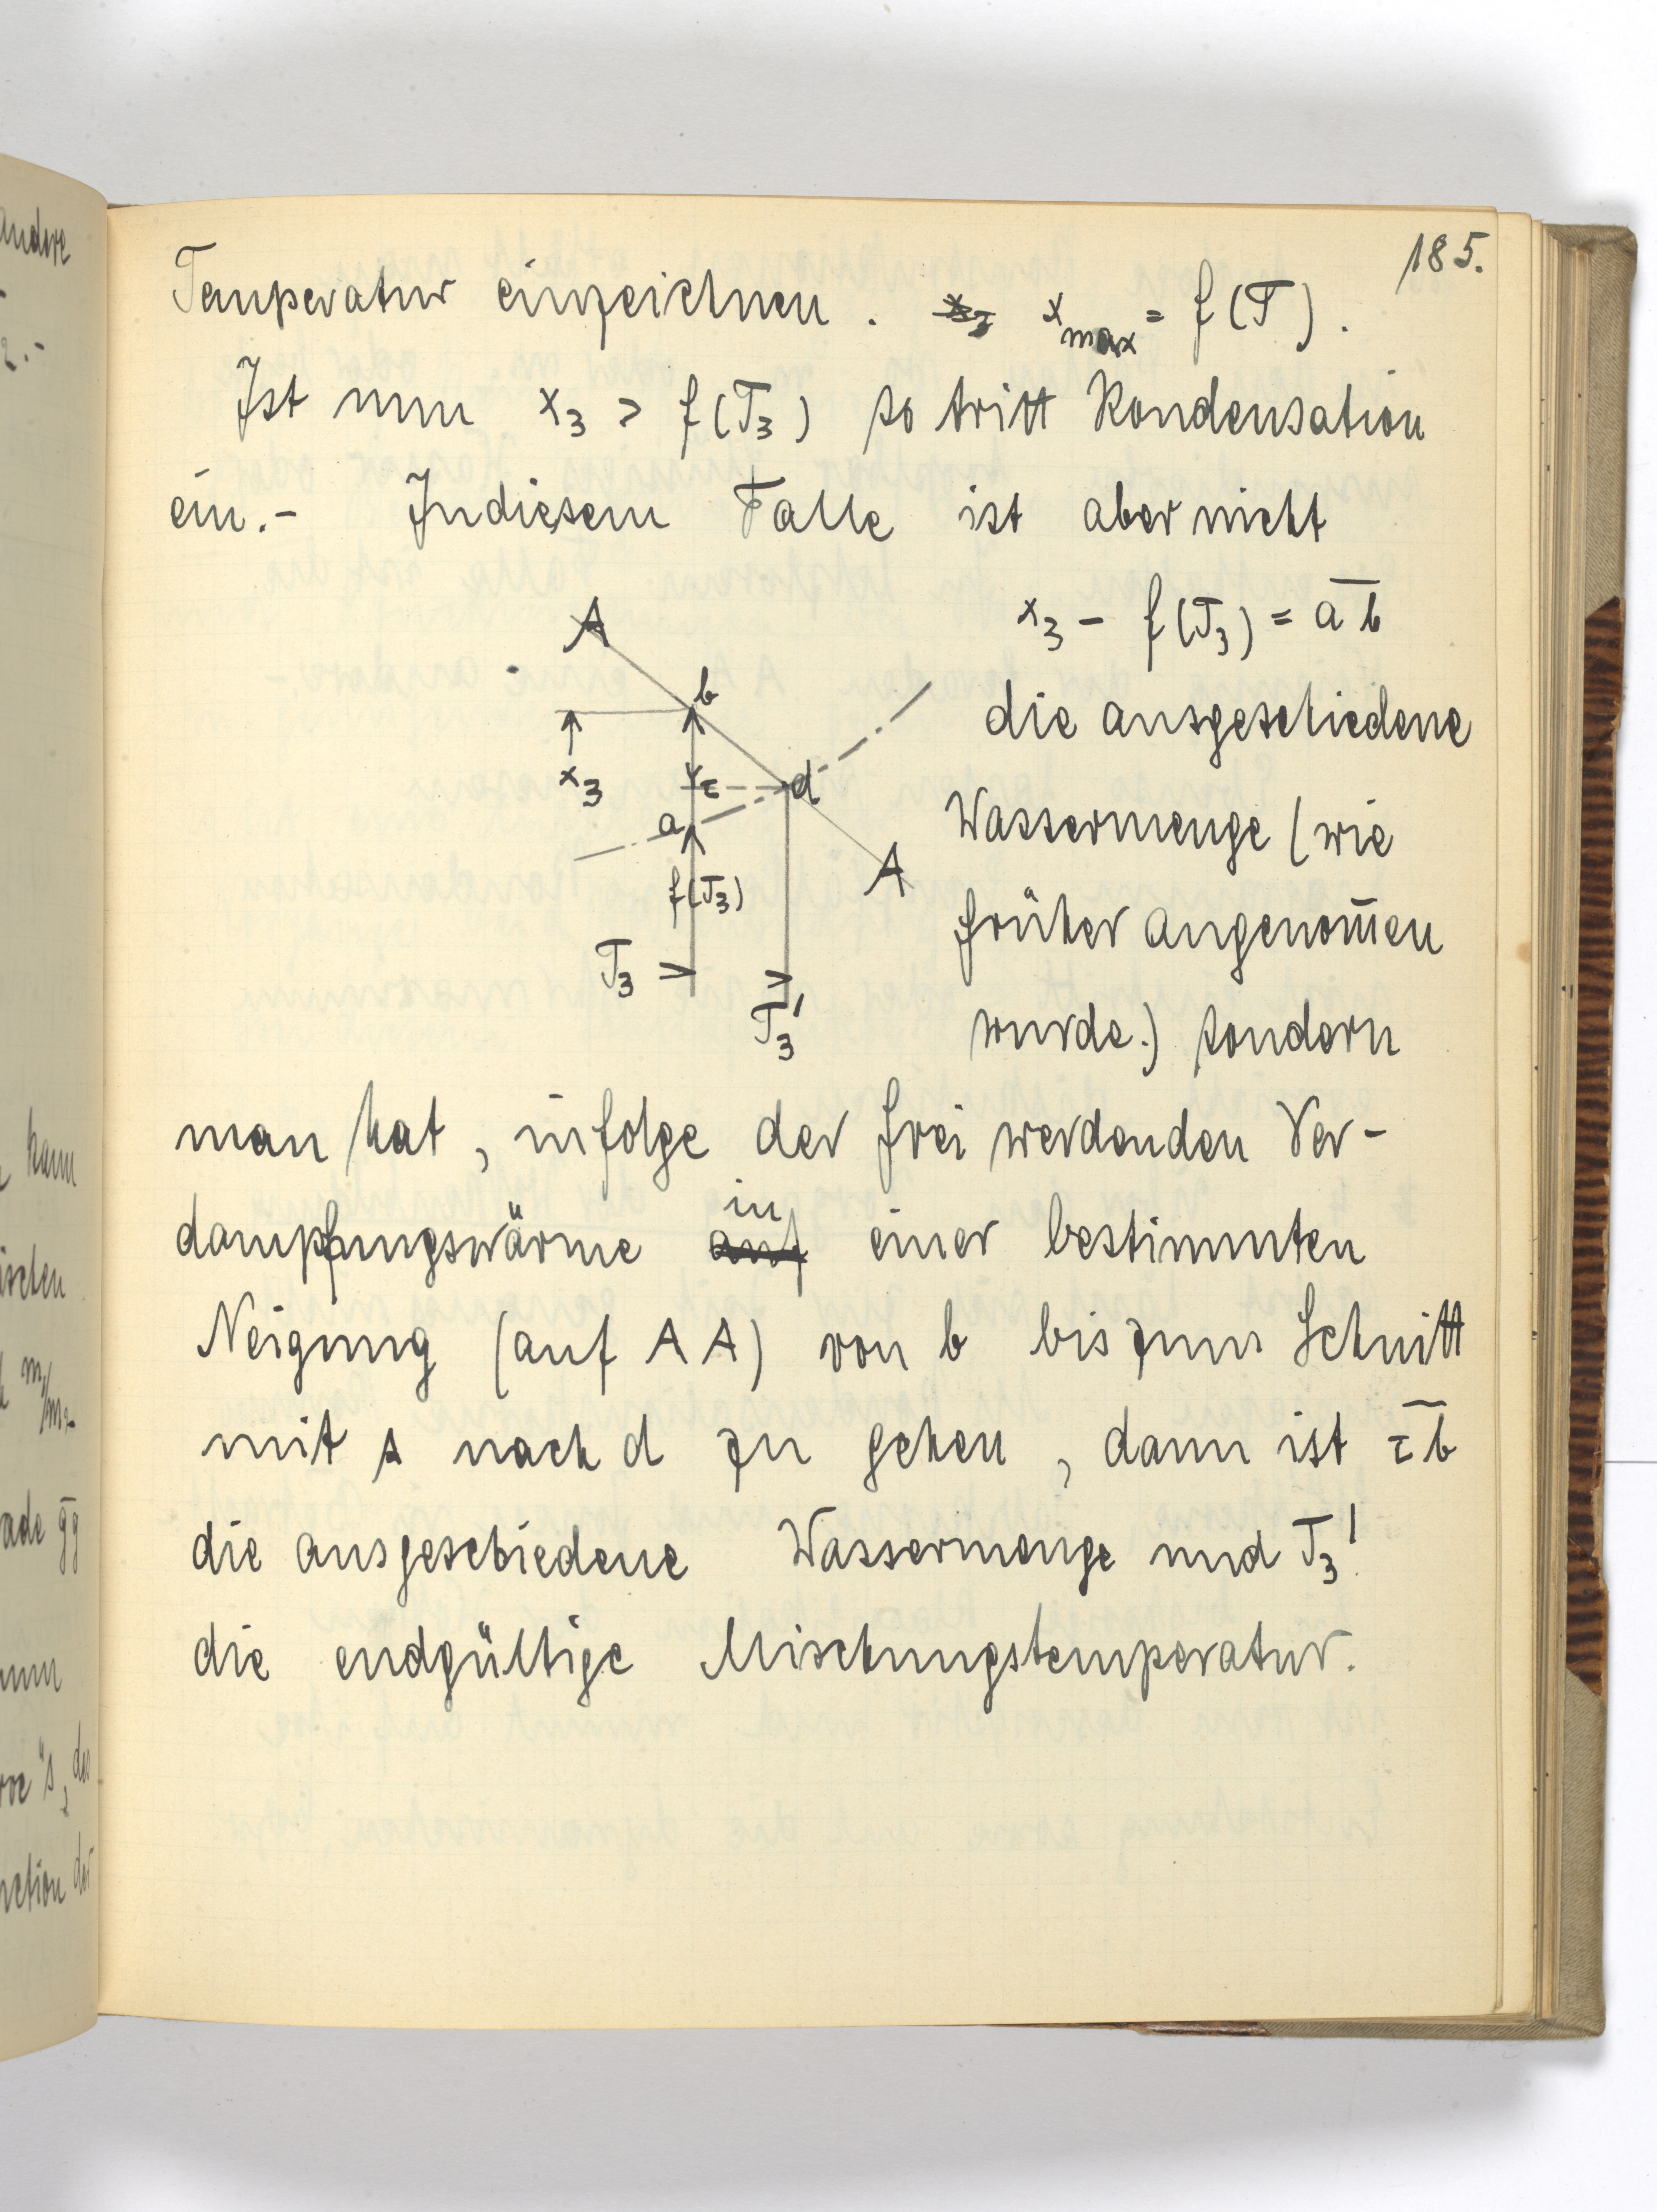 185.
Temperatur einzeichnen. x₃ x_max = f(T).
Ist nun x₃ > f(T₃) so tritt Kondensation
ein.- Indiesem Falle ist aber nicht
x₃ - f(T₃) = a̅b̅
die ausgeschiedene
Wassermenge (wie
früher angenom̅en
wurde.) sondern
A
b
x₃
c
d
a
A
f(T₃)
T₃
T₃'
man hat, infolge der frei werdenden Ver-
dampfungswärme auf in einer bestimmten
Neigung (auf AA) von b bis zum Schnitt
mit s nach d zu gehen, dann ist c̅b̅
die ausgeschiedene Wassermenge und T₃'
die endgültige Mischungstemperatur.
andere
2.-
kann
ischen
m/m2
ade g̅g̅
"s,